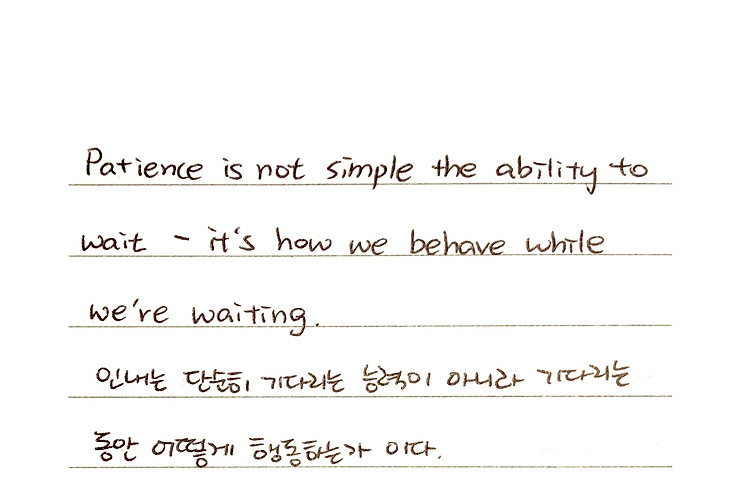 Patience is not simple the ability to
wait - it's how we behave while
we're waiting.
인내는 단순히 기다리는 능력이 아니라 기다리는
동안 어떻게 행동하는가 이다.